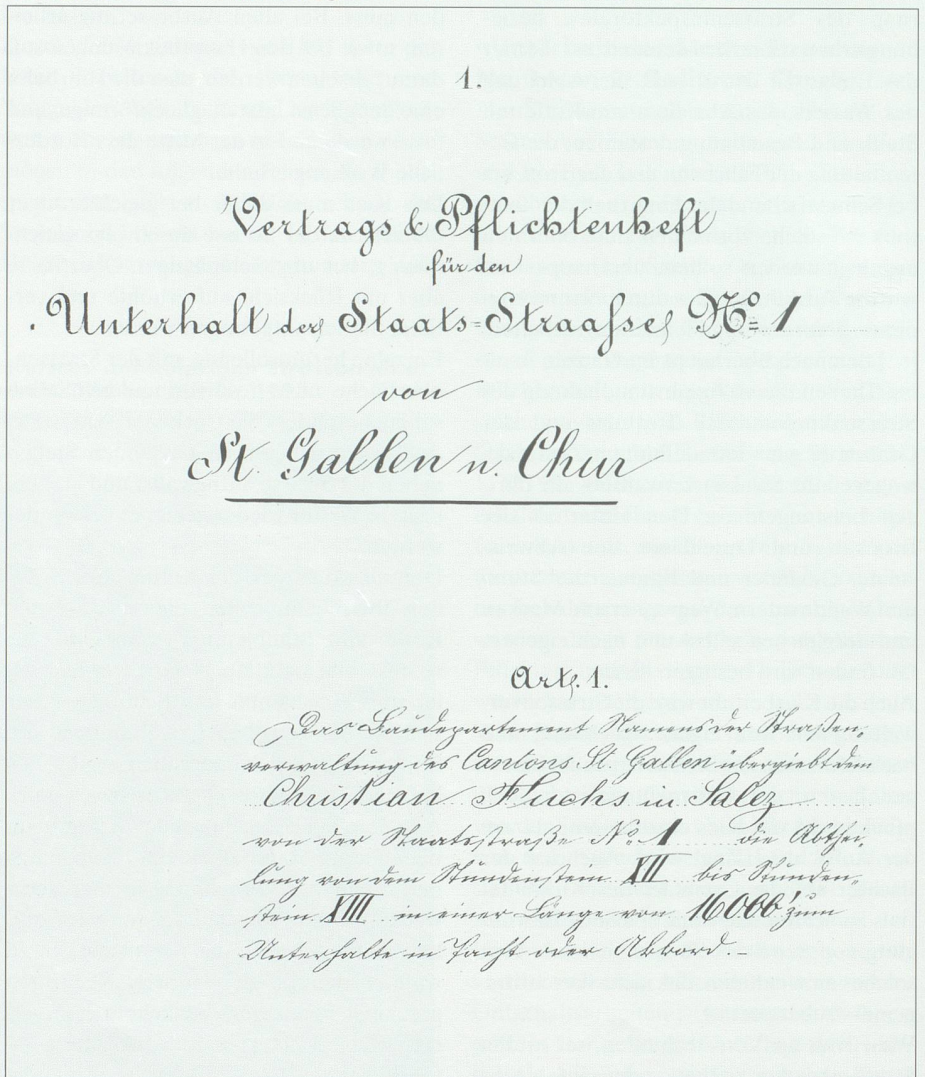 1.
Vertrags & Pflichtenheft
für den
Unterhalt der Staats-Straasse No 1
von
St. Gallen n. Chur
Art. 1.
Das Baudepartement Namens der Straßen-
verwaltung des Cantons St. Gallen übergiebt dem
Christian Fuchs in Salez
von der Staatsstraße No. 1 die Abthei-
lung von dem Stundenstein XII bis Stunden-
stein XIII in einer Länge von 16000' zum
Unterhalte in Pacht oder Akkord. –